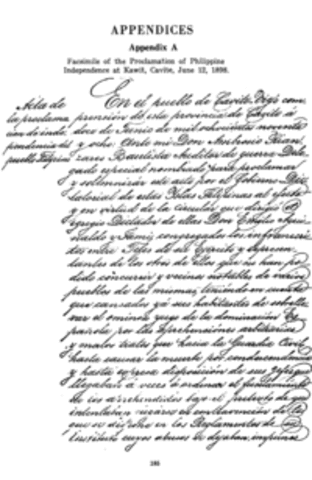 APPENDICES
Appendix A
Facsimile of the Proclamation of Philippine
Independence at Kawit, Cavite, June 12, 1898.
Acta de
la proclama
ción de inde
pendencia del
pueblo Filipino
En el pueblo de Cavite Viejo com
prension de esta provincia de Cavite á
doce de Junio de mil ochocientos noventa
y ocho Ante mi Don Ambrosio Rian
zares Bautista Auditor de guerra
gado especial nombrado para proclamar
y solemnizar este acto por el Gobierno Dic
tatorial de estas Islas Filipinas al efecto
y en virtud de la circular
Egregio Dictador de ellas Don Emilio Agui
naldo y Famy, congregados los infrascri
dos entre Jefes de su Ejercito y represen
tantes de los otros de ellos que no han po
dido concurrir y vecinos notables de varios
pueblos de las mismas, teniendo en cuenta
que cansados ya sus habitantes de sobrelle
var el ominoso yugo de la dominación Es
pañola por las aprehensiones arbitrarias
y malos tratos que hacia la Guardia Civil
hasta causar la muerte por condescendencia
y hasta expresa disposicion de sus Jefes que
llegaban á veces á ordenar el fusilamiento
de los aprehendidos bajo el pretexto de que
intentaban en contravencion de lo
que se dispone en los Reglamentos de su
Instituto cuyos abusos se dejaban impunes